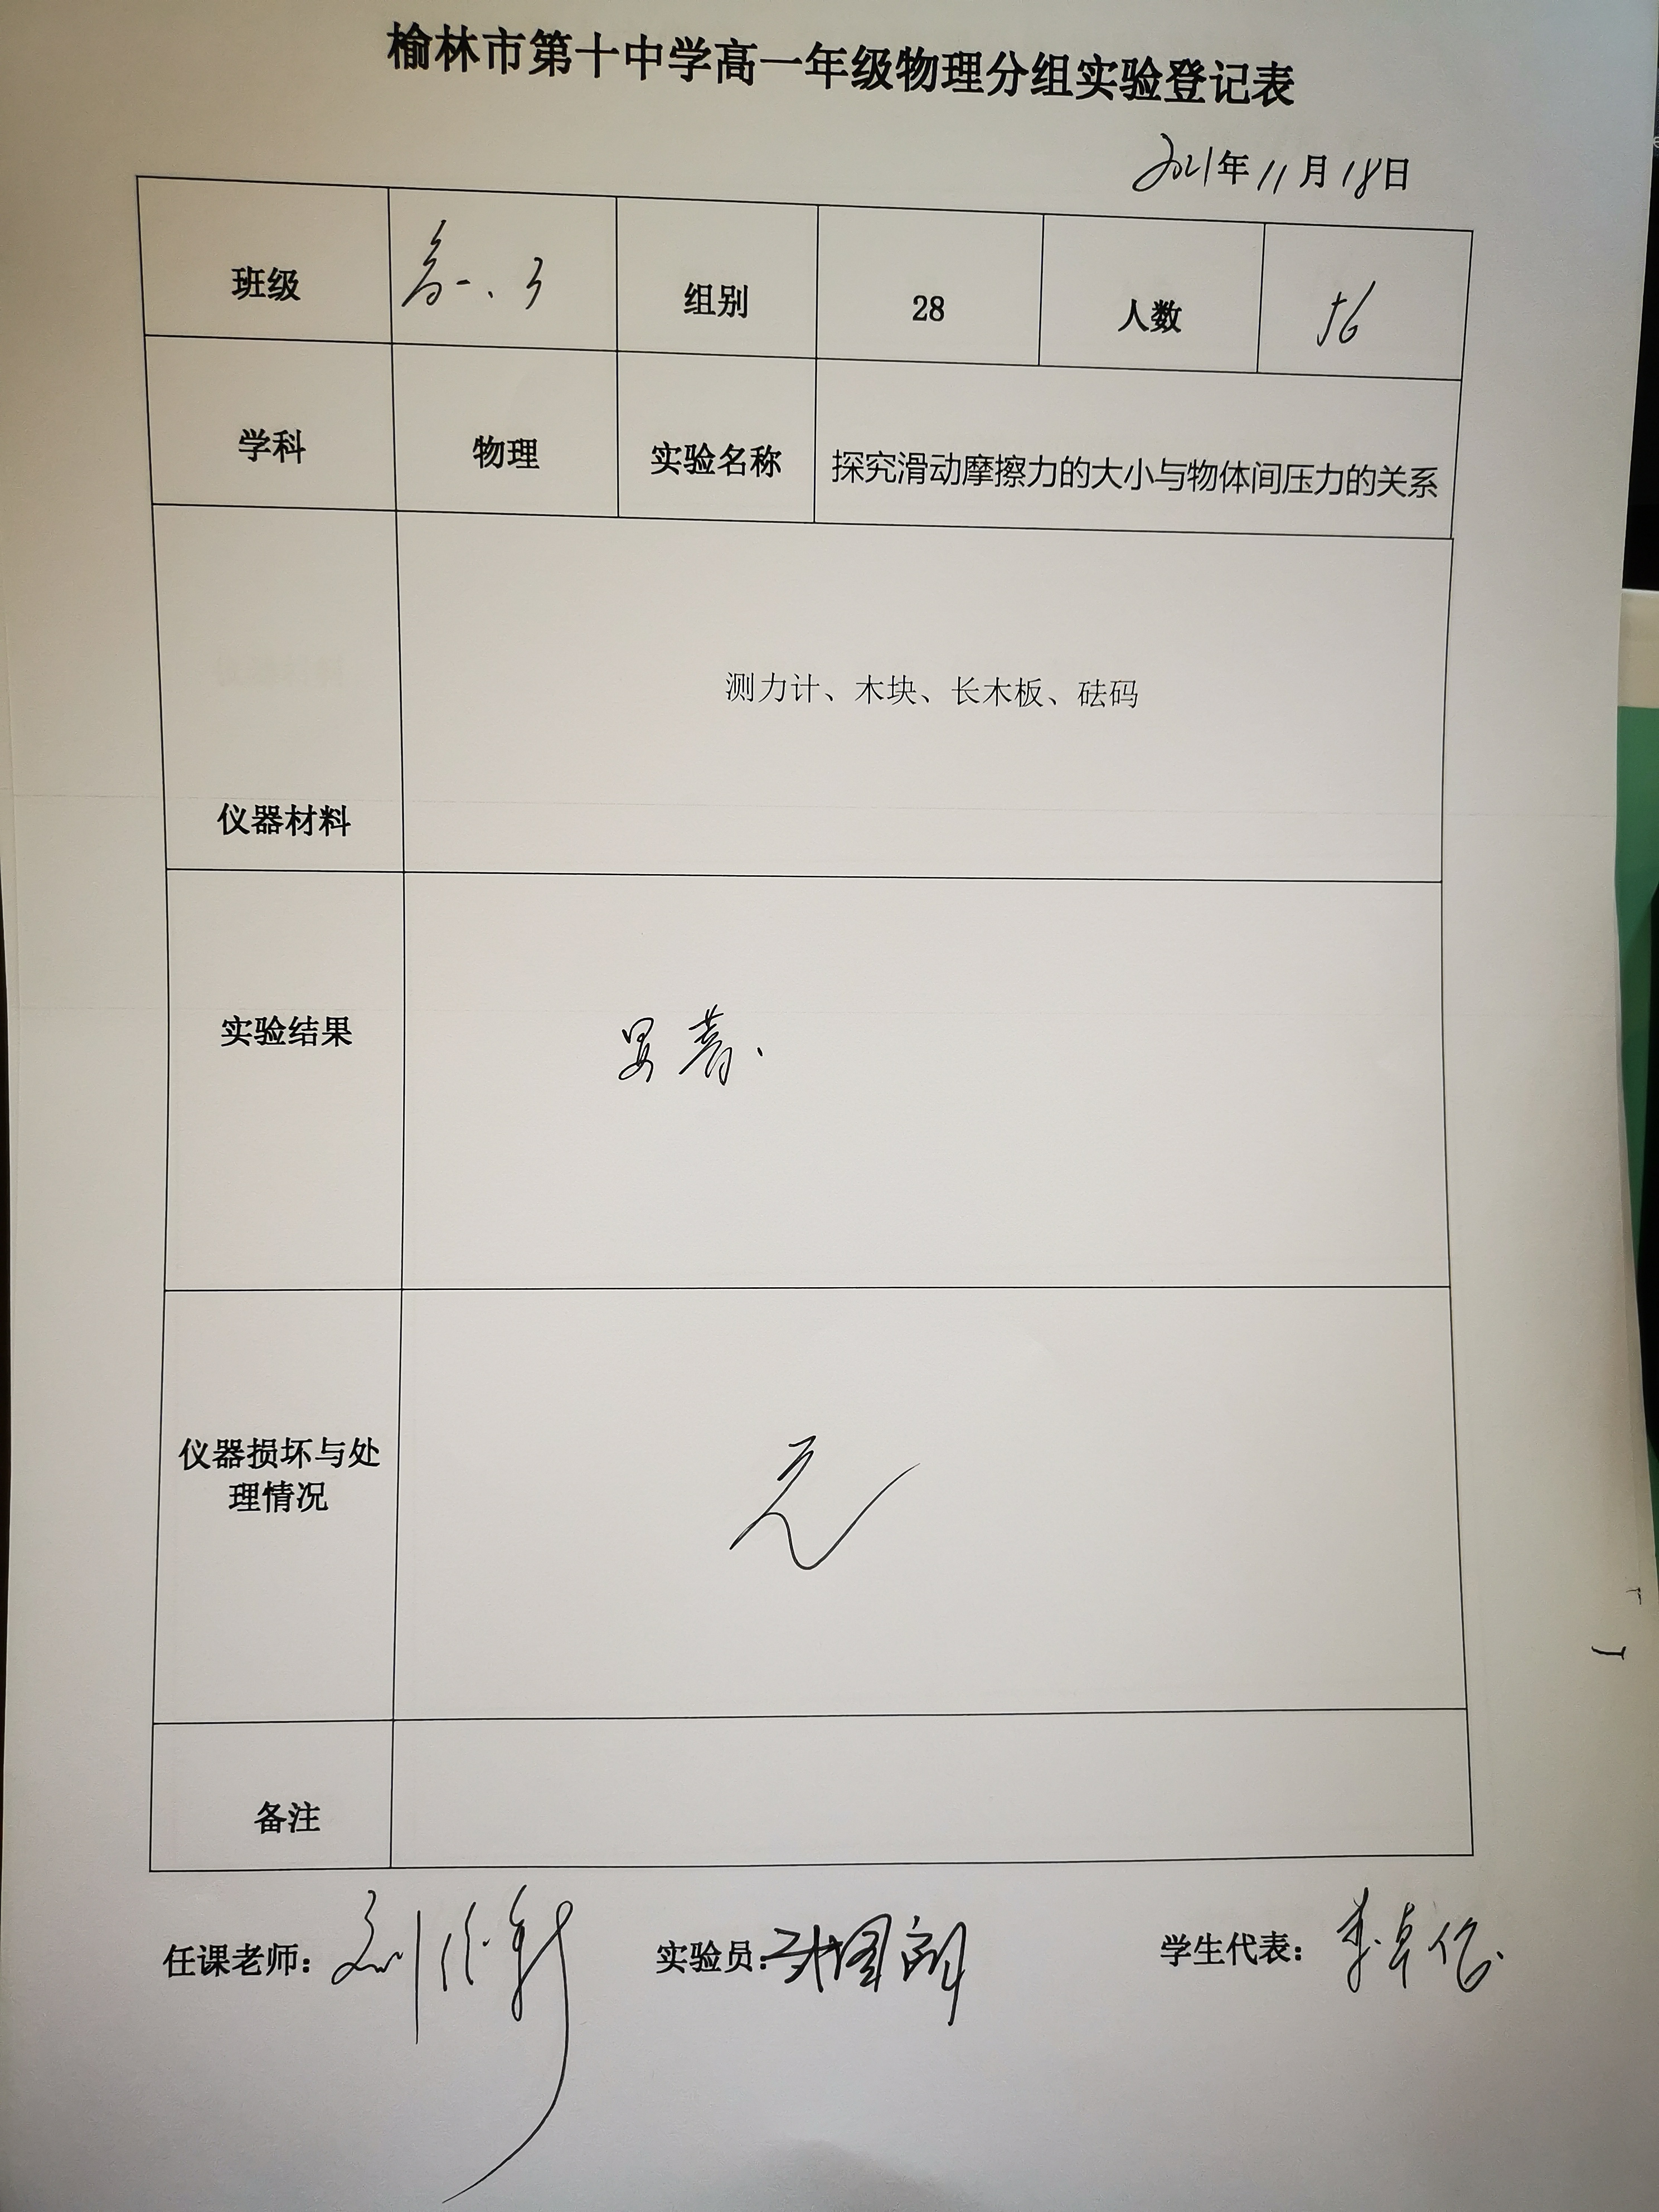 榆林市第十中学高一年级物理分组实验登记表
2021年11月18日
班级 高一.3 组别 28 人数 56
学科 物理 实验名称 探究滑动摩擦力的大小与物体间压力的关系
仪器材料 测力计、木块、长木板、砝码
实验结果 显著.
仪器损坏与处
理情况
无
备注
任课老师: 实验员: 学生代表: